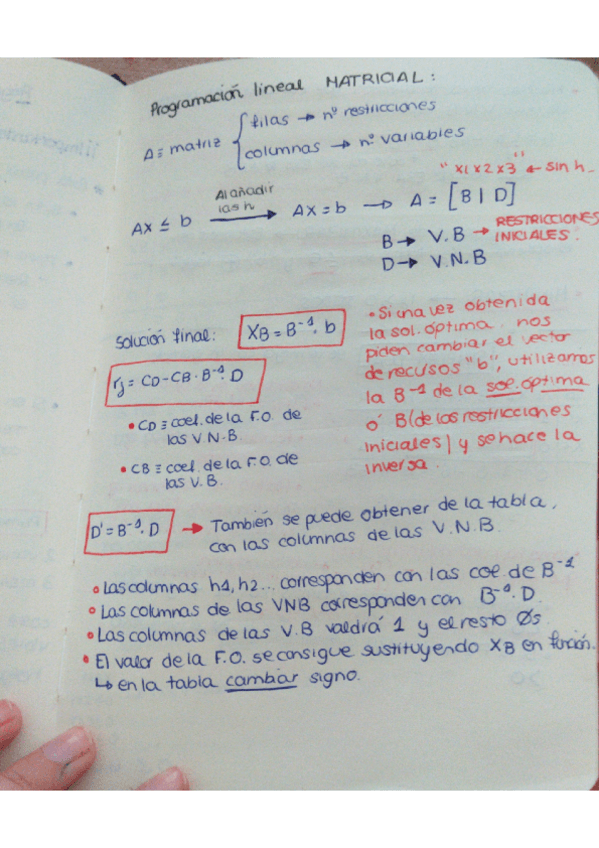 Programación lineal MATRICIAL:
A ≡ matriz { filas → nº restricciones
columnas → nº variables
"x1 x2 x3" ← sin h
Ax ≤ b Al añadir las h → Ax = b → A = [B | D]
B → V.B → RESTRICCIONES INICIALES.
D → V.N.B
Solución final: XB = B⁻¹ · b
rj = CD - CB · B⁻¹ · D
• CD ≡ coef. de la F.O. de
las V.N.B
• CB ≡ coef. de la F.O. de
las V.B.
• Si una vez obtenida
la sol. óptima, nos
piden cambiar el vector
de recusos "b", utilizamos
la B⁻¹ de la sol. óptima
ó B (de las restricciones
iniciales) y se hace la
inversa.
D' = B⁻¹ · D → También se puede obtener de la tabla,
con las columnas de las V.N.B.
• Las columnas h1, h2... corresponden con las coe. de B⁻¹
• Las columnas de las VNB corresponden con B⁻¹ · D.
• Las columnas de las V.B valdrá 1 y el resto Øs.
• El valor de la F.O. se consigue sustituyendo XB en función.
↳ en la tabla cambar signo.